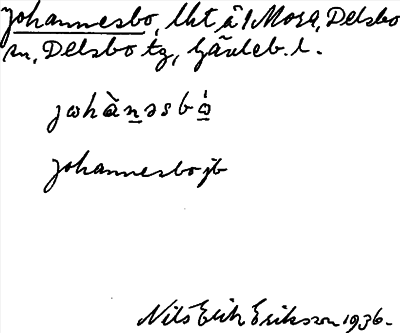 Johannesbo, lht å 1 Mora, Delsbo
sn, Delsbo tg, Gävleb. l.
johannesbo jb
Nils Erik Eriksson 1936.